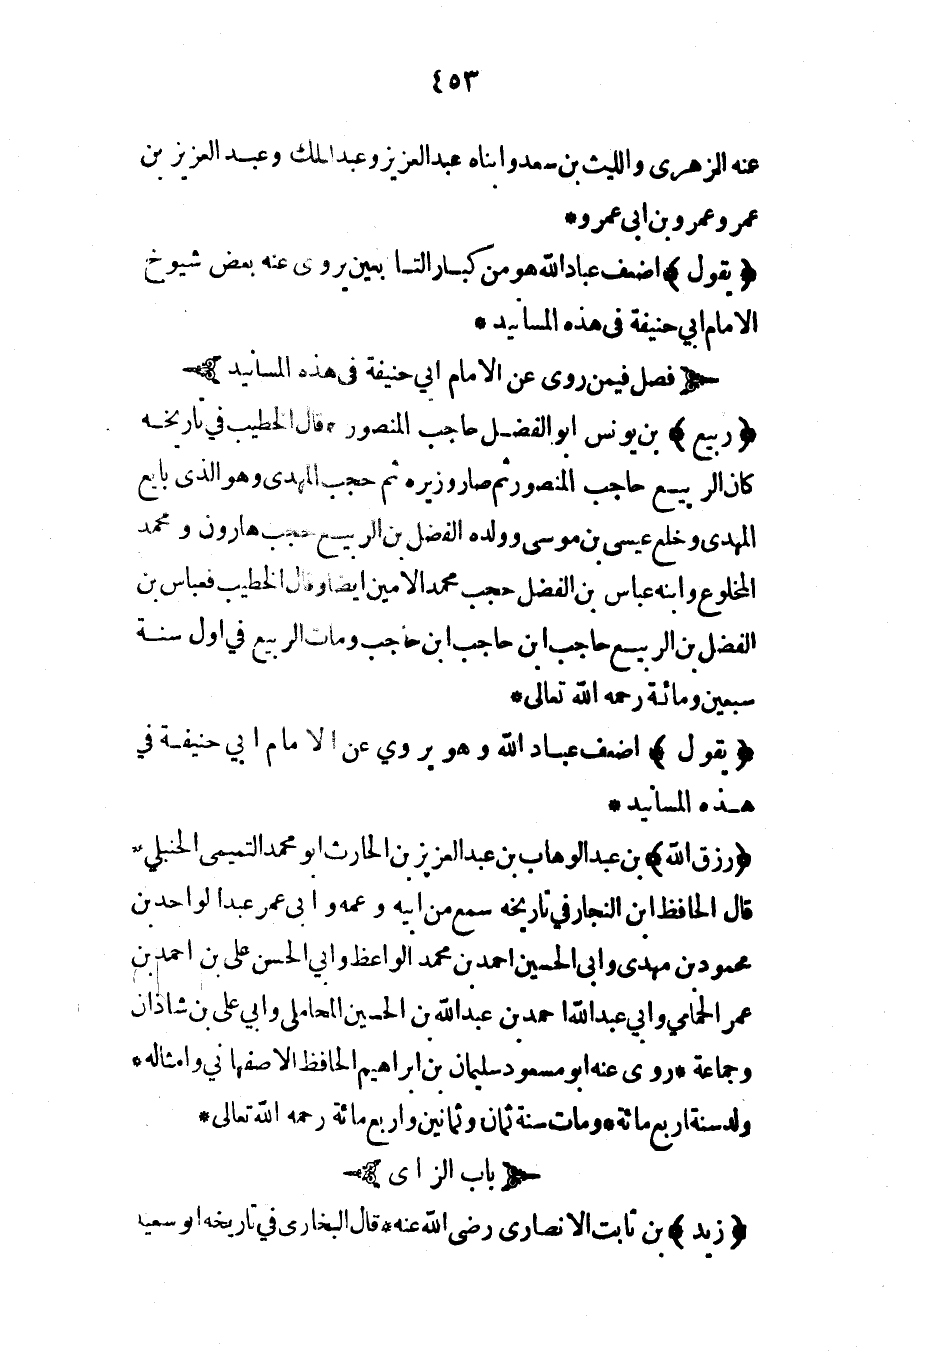 ٤٥٣
عنه الزهرى والليث بن سعد وابناه عبد العزيز وعبد الملك وعبد العزيز بن
عمر وعمرو بن ابى عمرو*
﴿ يقول ﴾ اضعف عباد الله هو من كبار التابعين يروى عنه بعض شيوخ
الامام ابي حنيفة فى هذه المسانيد *
فصل فيمن روى عن الامام ابي حنيفة فى هذه المسانيد
﴿ ربيع ﴾ بن يونس ابو الفضل حاجب المنصور * قال الخطيب في تاريخه
كان الربيع حاجب المنصور ثم صار وزيره ثم حجب المهدى وهو الذى بايع
المهدى وخلع عيسى بن موسى وولده الفضل بن الربيع حجب هارون و محمد
المخلوع وابنه عباس بن الفضل حجب محمد الامين ايضا وقال الخطيب فعباس بن
الفضل بن الربيع حاجب ابن حاجب ابن حاجب ومات الربيع في اول سنة
سبعين ومائة رحمه الله تعالى*
﴿ يقول ﴾ اضعف عباد الله وهو يروي عن الامام ابي حنيفة في
هذه المسانيد *
﴿رزق الله﴾ بن عبد الوهاب بن عبد العزيز بن الحارث ابو محمد التميمى الحنبلي*
قال الحافظ ابن النجار في تاريخه سمع من ابيه و عمه و ابى عمر عبد الواحد بن
محمود بن مهدى وابى الحسين احمد بن محمد الواعظ وابي الحسن على بن احمد بن
عمر الحمامي وابي عبد الله احمد بن عبد الله بن الحسين المحاملى وابي على بن شاذان
وجماعة * روى عنه ابو مسعود سليمان بن ابراهيم الحافظ الاصفهاني وامثاله*
ولد سنة اربع مائة* ومات سنة ثمان وثمانين واربع مائة رحمه الله تعالى*
باب الزاى
﴿ زيد ﴾ بن ثابت الانصارى رضى الله عنه* قال البخارى في تاريخه ابو سعيد